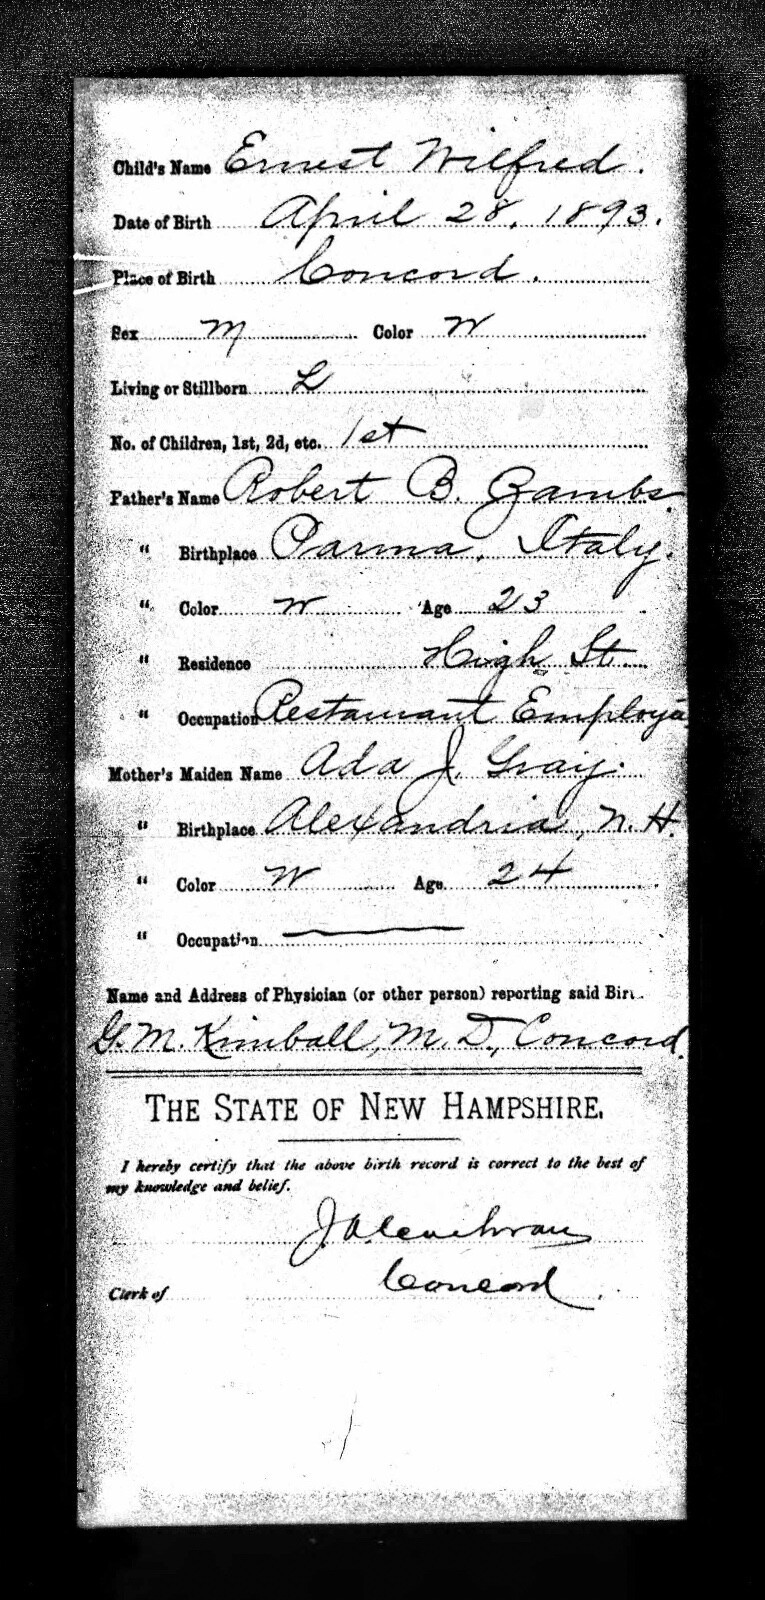 Child's Name Ernest Wilfred.
Date of Birth April 28, 1893.
Place of Birth Concord.
Sex M Color W
Living or Stillborn L
No. of Children, 1st, 2d, etc. 1st
Father's Name Robert B. Zambs
" Birthplace Parma, Italy.
" Color W Age 23
" Residence High St.
" Occupation Restaurant
Mother's Maiden Name Ada J. Gray.
" Birthplace Alexandria, N.H.
" Color W Age 24
" Occupation
Name and Address of Physician (or other person) reporting said
G. M. Kimball, M. D., Concord.
THE STATE OF NEW HAMPSHIRE.
I hereby certify that the above birth record is correct to the best of
my knowledge and belief.
Concord.
Clerk of